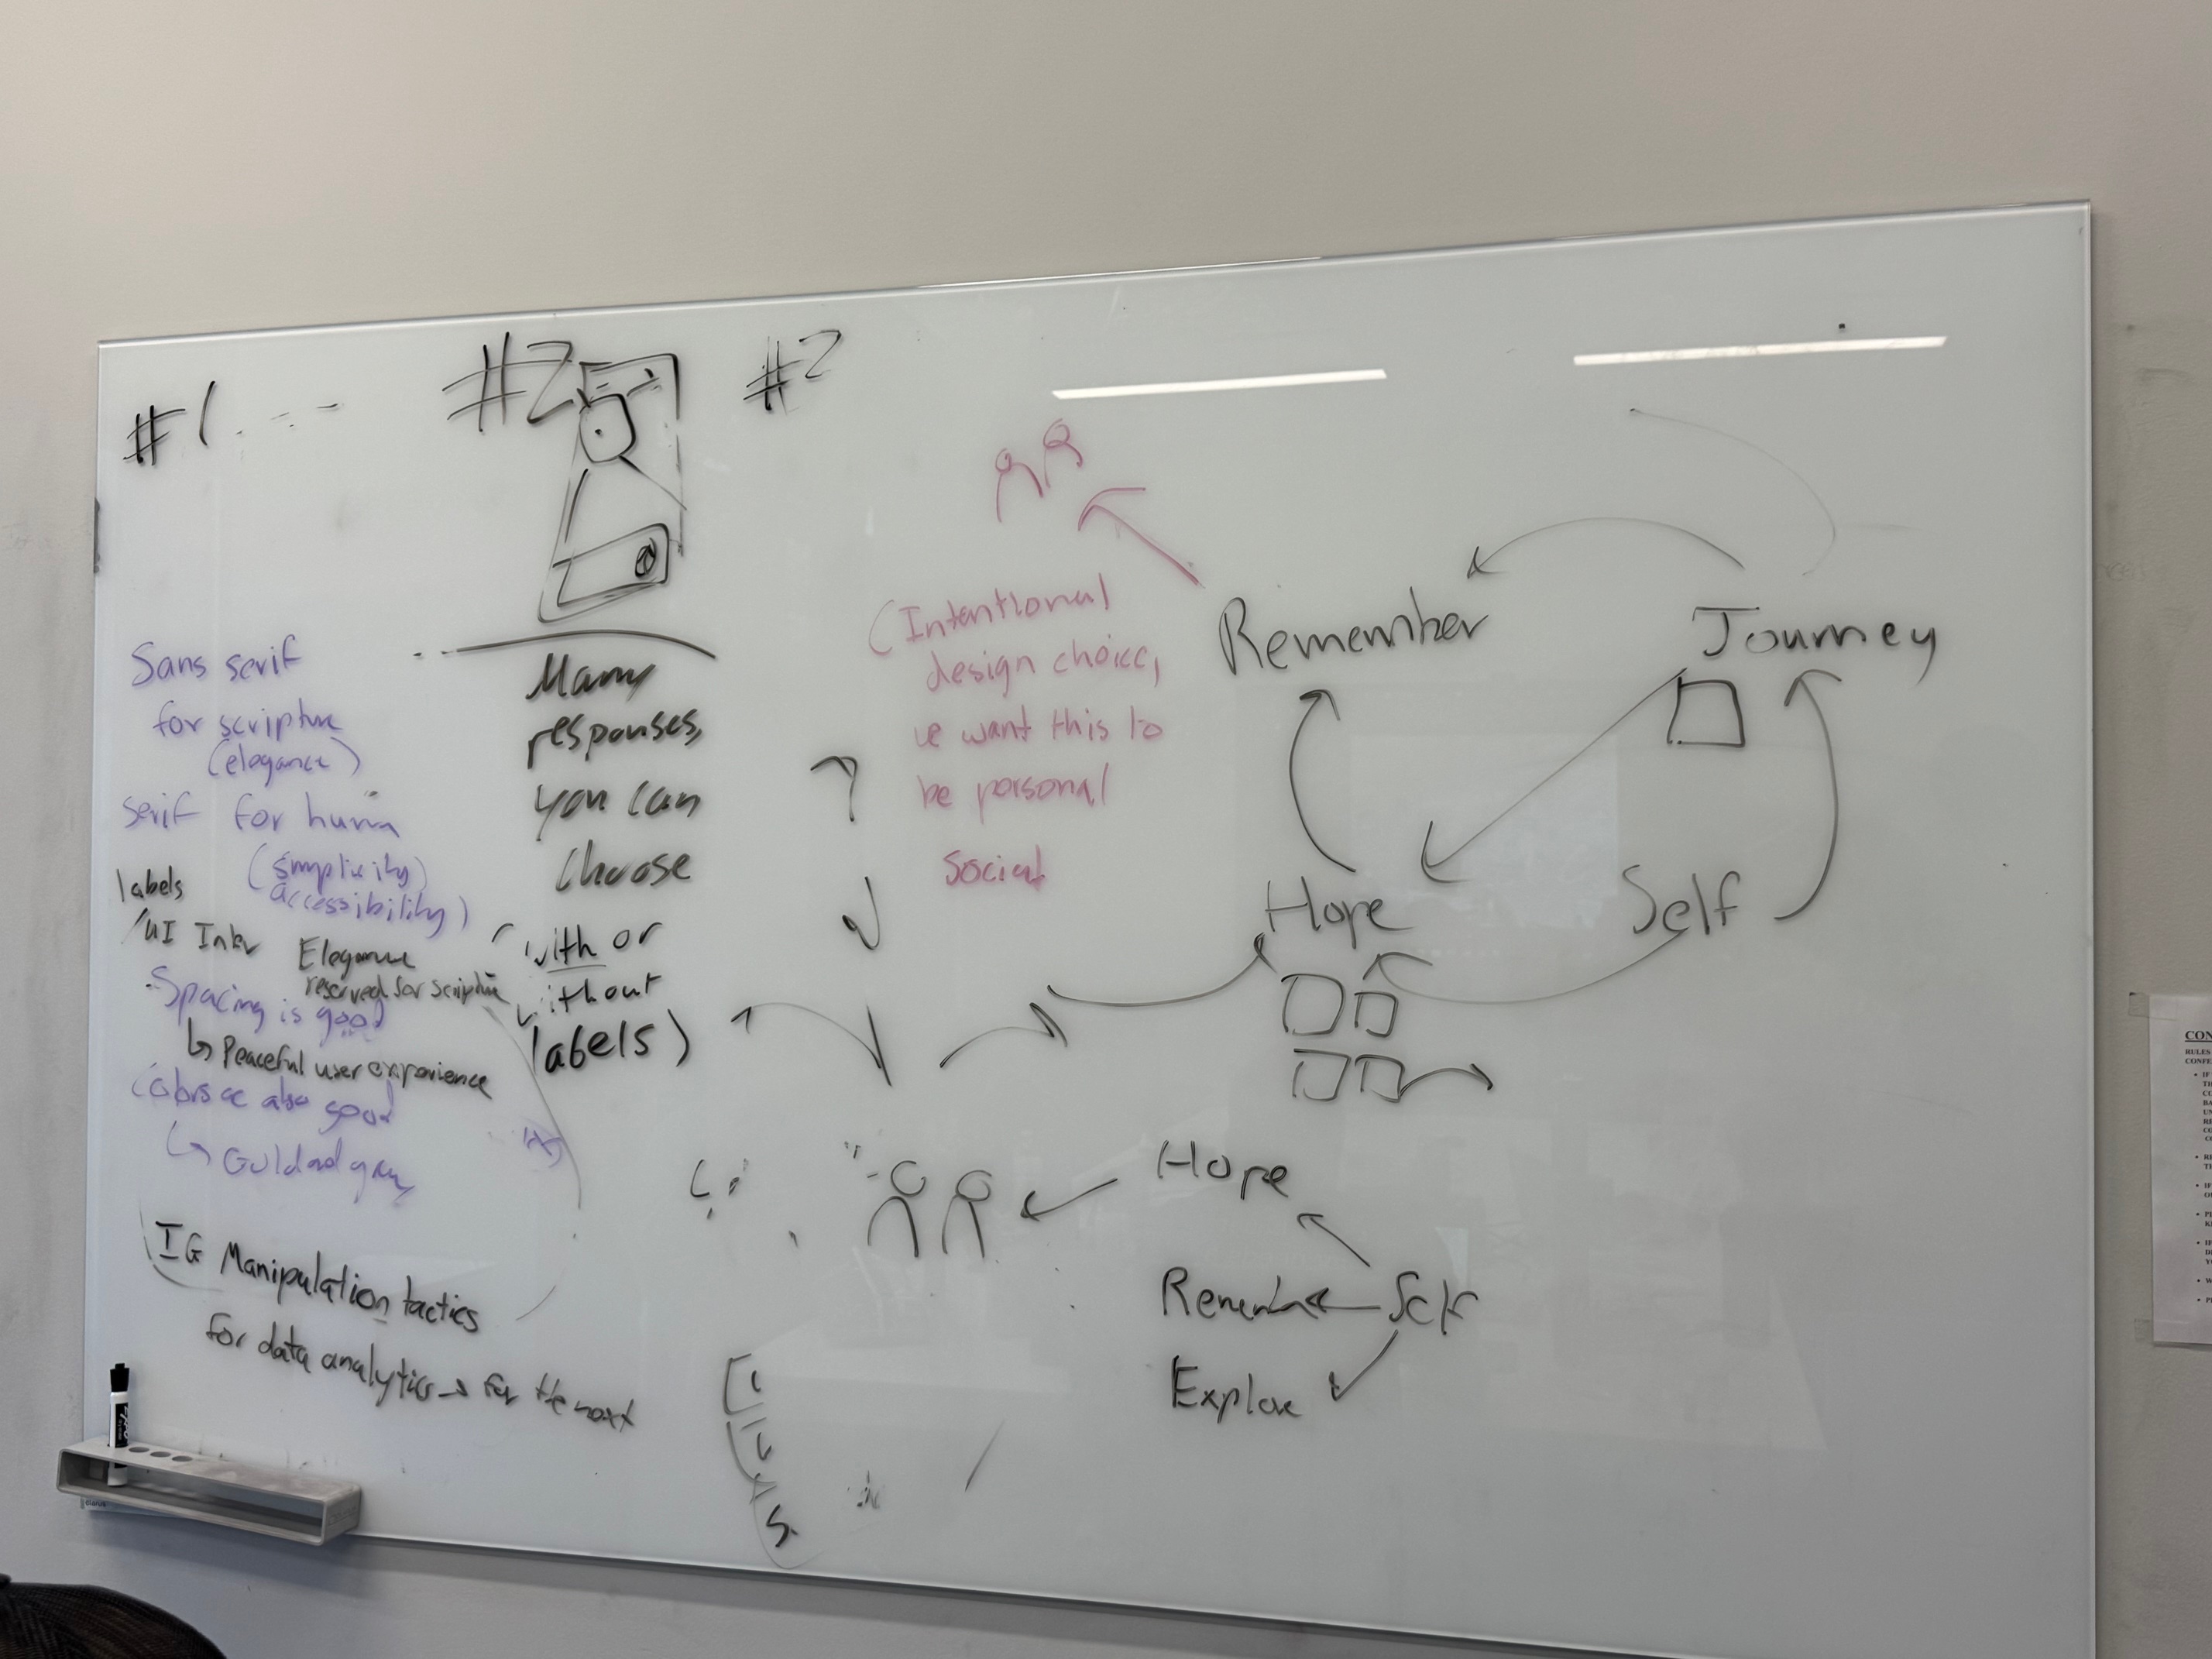 #1
#2
#2
Sans serif
for scripture
(elegance)
serif for human
(simplicity
accessibility)
labels
/UI Inter
Elegance
reserved for scripture
Spacing is good
↳ Peaceful user experience
also good
↳ Gold and
IG Manipulation tactics
for data analytics → for the next
Many
responses,
you can
choose
with or
without
labels)
(Intentional
design choice,
we want this to
be personal
Social
Remember
Journey
Hope
Self
Hope
Self
Explore
CON
RULES
CONFE